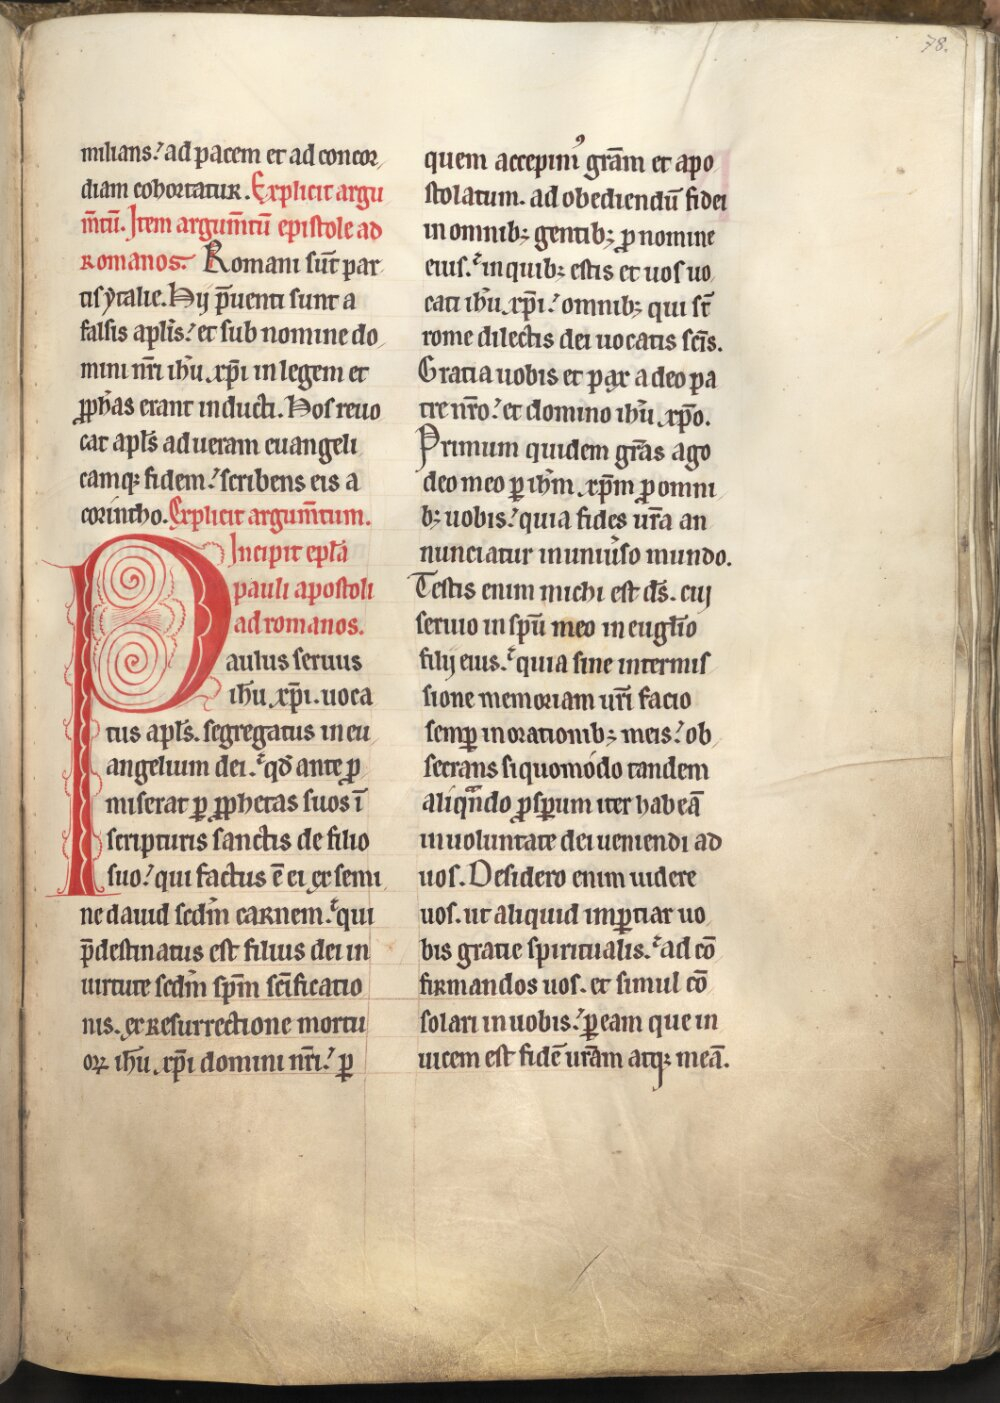 78.
milians.ᷓ ad pacem et ad concor
diam cohortatur. Explicit argu
m̅tū. Item argum̅tū epistole ad
romanos. Romani sūt par
tis ytalie. Hij p̄uenti sunt a
falsis apl̅is. et sub nomine do
mini nr̅i ih̅u xp̅i in legem et
ꝓph̅as erant inducti. Hos reuo
cat apl̅s ad ueram euangeli
camqꝫ fidem. scribens eis a
corintho. Explicit argum̅tum.
Incipit ep̅la
pauli apostoli
ad romanos.
Paulus seruus
ih̅u xp̅i. uoca
tus apl̅s. segregatus in eu
angelium dei. qd̅ ante ꝓ
miserat ꝑ ꝓphetas suos ī
scripturis sanctis de filio
suo. qui factus ē ei ex semi
ne dauid scd̅m carnem. qui
p̄destinatus est filius dei in
uirtute scd̅m sp̅m sc̅ificatio
nis. ex resurrectione mortu
oꝝ ih̅u xp̅i domini nr̅i. ꝑ
quem accepim᾿ gr̅am et apo
stolatum. ad obediendū fidei
in omnibꝫ gentibꝫ ꝓ nomine
eius. in quibꝫ estis et uos uo
cati ih̅u xp̅i. omnibꝫ qui st̅
rome dilectis dei uocatis sc̅is.
Gratia uobis et pax a deo pa
tre nr̅o. et domino ih̅u xp̅o.
Primum quidem gr̅as ago
deo meo ꝑ ih̅m xp̅m ꝓ omni
bꝫ uobis. quia fides ur̅a an
nunciatur in uniu̓so mundo.
Testis enim michi est ds̅. cuj
seruio in sp̅u meo in eugl̅io
filij eius. quia sine intermis
sione memoriam ur̅i facio
semꝑ in orationibꝫ meis. ob
secrans si quomodo tandem
aliqn̅do ꝓsꝑum iter habeā
in uoluntate dei ueniendi ad
uos. Desidero enim uidere
uos. ut aliquid imꝑtiar uo
bis gratie spiritualis. ad cō
firmandos uos. et simul cō
solari in uobis. ꝑ eam que in
uicem est fidē ur̅am atqꝫ meā.